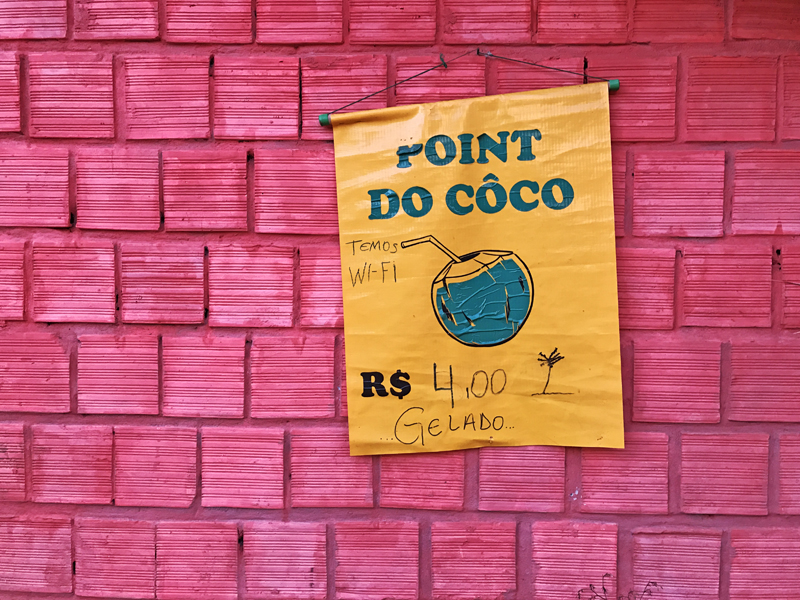 POINT
DO CÔCO
TEMOS
WI-FI
R$ 4,00
...GELADO...